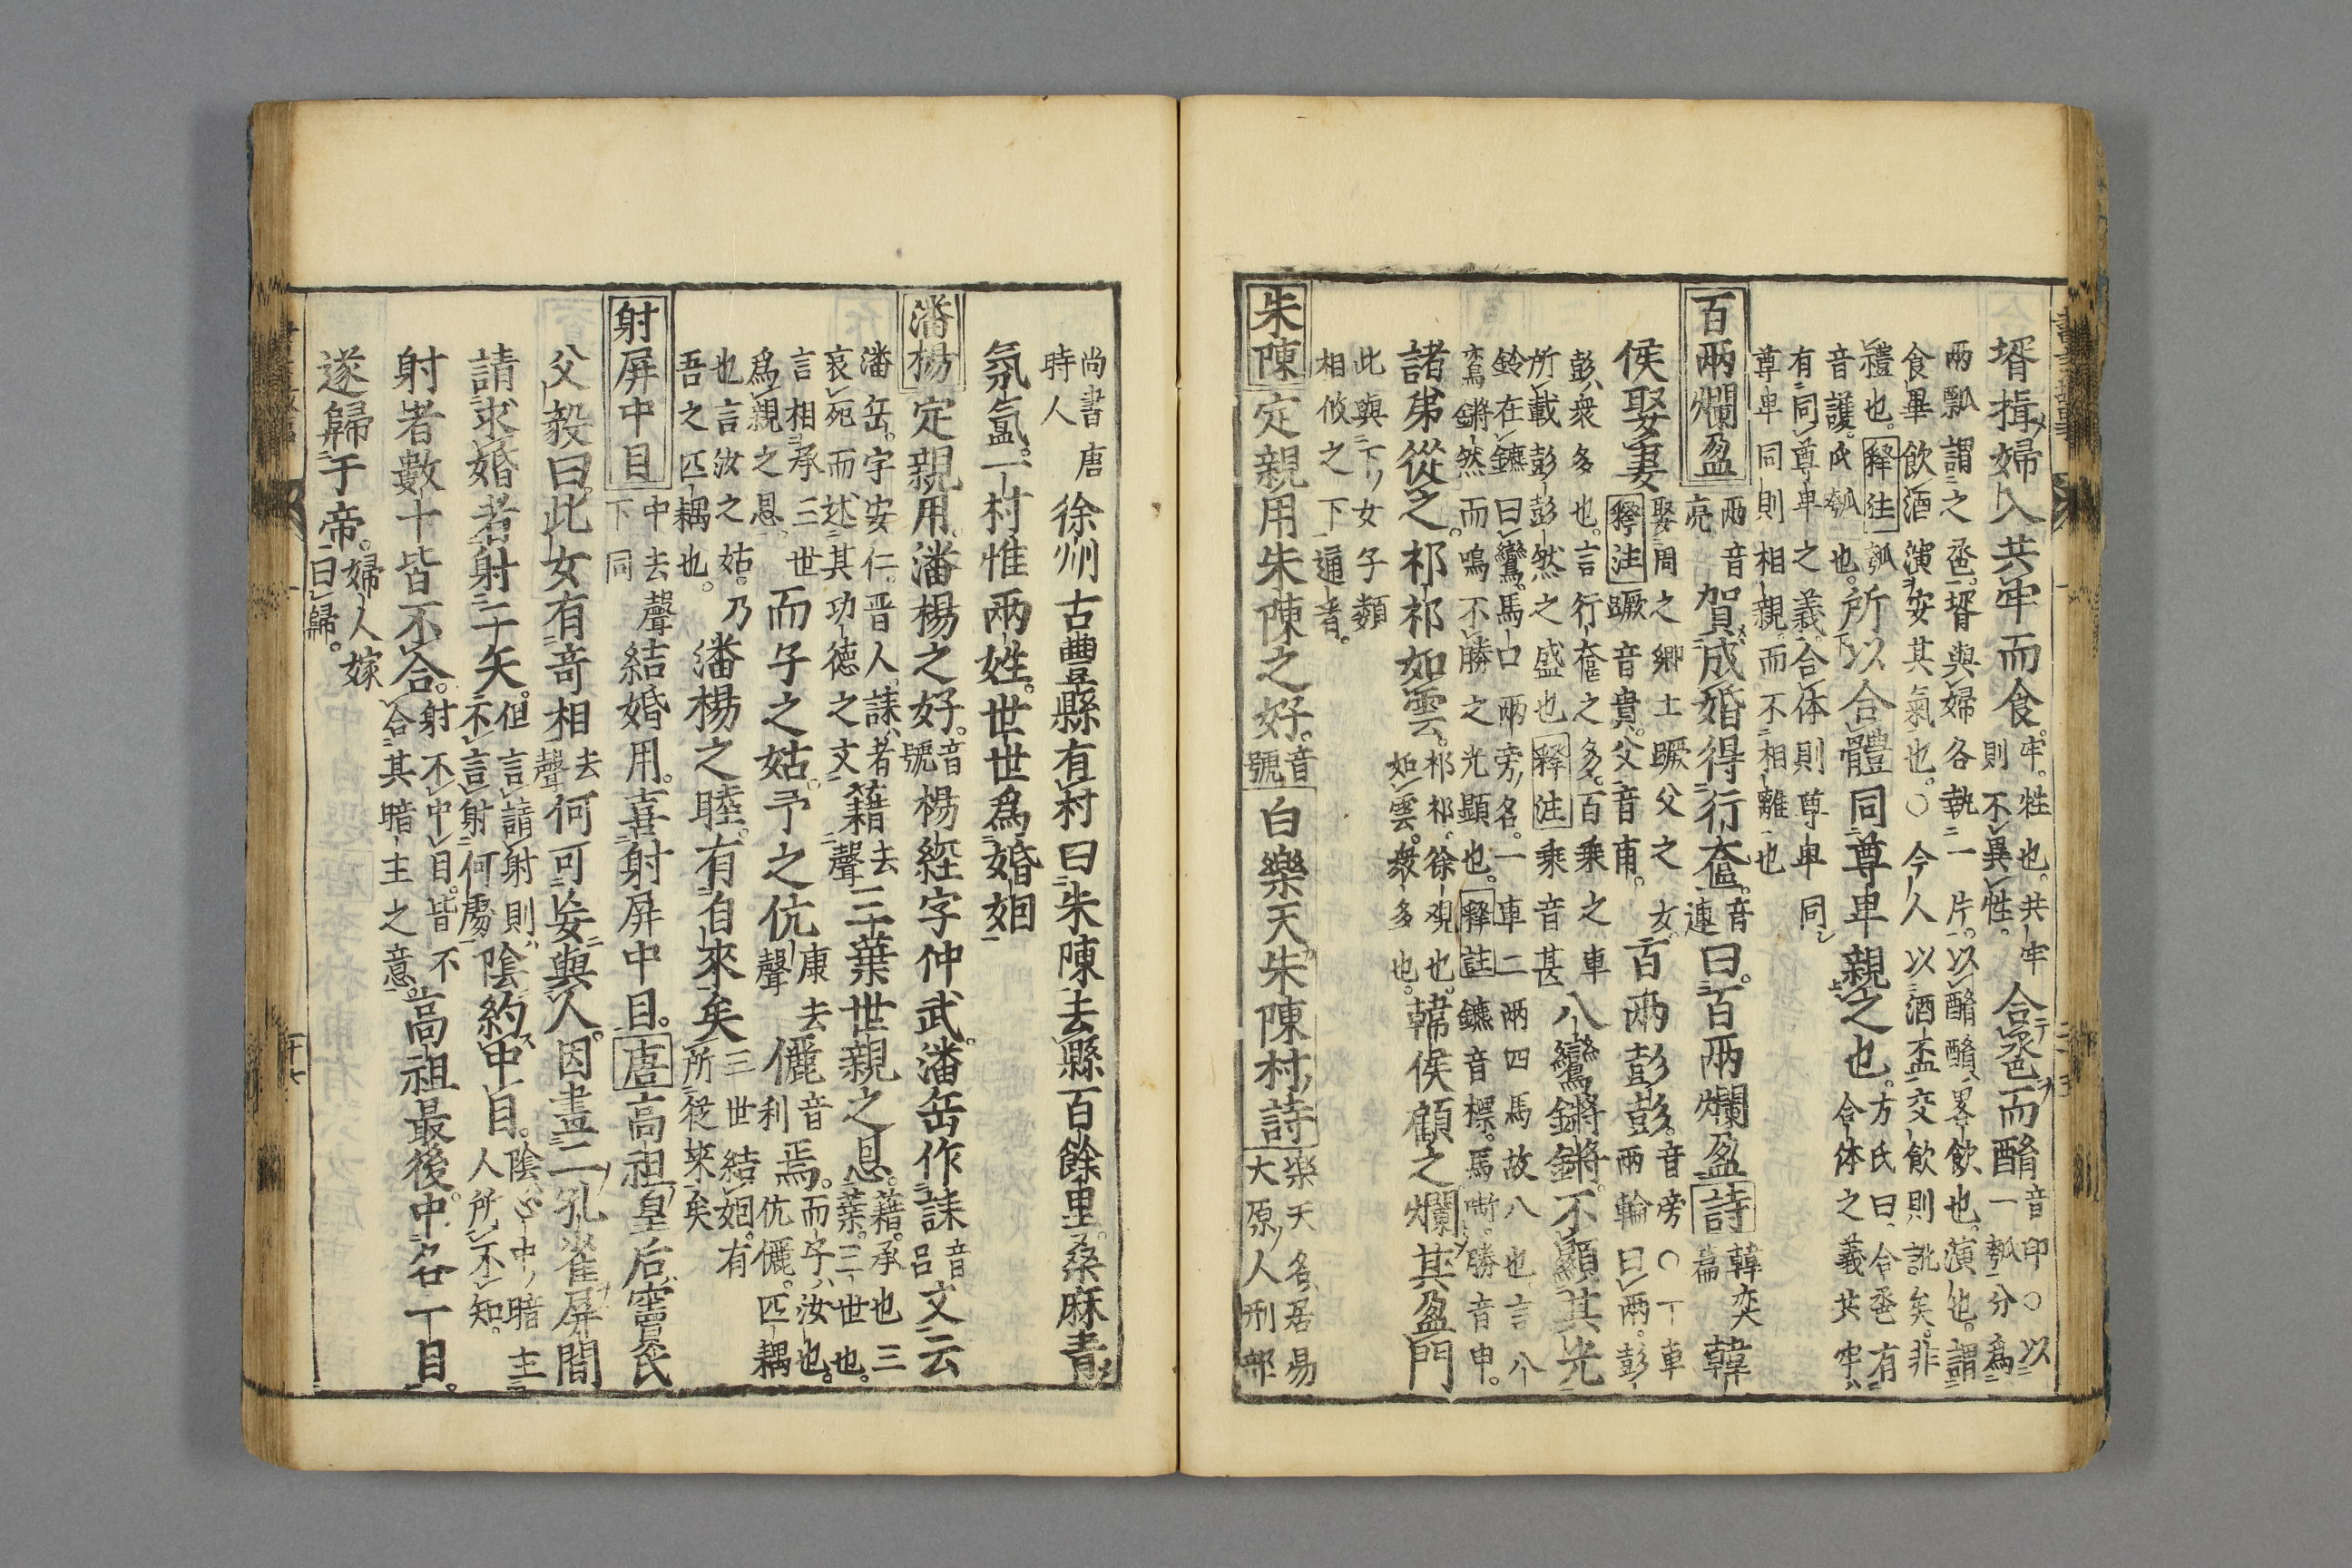 壻揖婦入共牢而食。牢。牲也。共牢則不異牲。合巹而酳音印○以一瓠分爲
兩瓢謂之巹。壻與婦各執一片。以酳酳畧飲也。演也。謂
食畢飲酒演安其氣也。○今人以酒盃交飲則訛矣。非
禮也。釋注瓠音護。氏瓠也。所以合體同尊卑親之也。方氏曰合巹有合体之義共牢
有同尊卑之義。合体則尊卑同
尊卑同則相親。而不相離也
百兩爛盈兩音亮賀成婚得行奩。音連曰。百兩爛盈詩韓奕篇韓
侯娶妻娶周之鄉土蹶父之女釋注蹶音貴。父音甫。百兩彭彭。音旁○丁車兩輪曰兩。彭
彭衆多也。言行奩之多。百乘之車
所載彭彭然之盛也釋注乘音甚八鸞鏘鏘。不顯其光
鈴在鑣曰鸞。馬口兩旁名。一車二兩四馬故八也言八
鸞鏘然而鳴不勝之光顯也。釋註鑣音標。馬嘶。勝音申。
諸弟從之。祁祁如雲。祁祁。徐覌也。如雲。衆多也。韓侯顧之爛其盈門
此與下女子類
相攸之下通者。
朱陳定親用朱陳之好。音號白樂天朱陳村詩楽天名居易大原人刑部
尚書唐時人徐州古豐縣有村曰朱陳去縣百餘里。桑麻青
氛氳。一村惟兩姓。世世爲婚姻
潘楊定親用。潘楊之好。音號楊經字仲武。潘岳作誄音呂文云
潘岳。字安仁。晋人誄者
哀死而述其功徳之文籍去聲三葉世親之恩。藉。承也三葉。三世也。
言相承三世
爲親之恩。而子之姑。予之伉康去聲儷音利焉。而子汝也。伉儷。匹耦
也言汝之姑。乃
吾之匹耦也。潘楊之睦。有自來矣三世結姻。有所從来矣
射屏中目中去聲下同結婚用。喜射屏中目。唐高祖皇后竇氏
父毅曰。此女有竒相去聲何可妄與人。因畫二孔雀屏間
請求婚者。射二矢。但言請射則不言射何處陰約中目。陰心中暗主人所不知。
射者數十皆不合。射不中目。皆不合其暗主之意。高祖最後。中各一目。
遂歸于帝。婦人嫁曰歸。